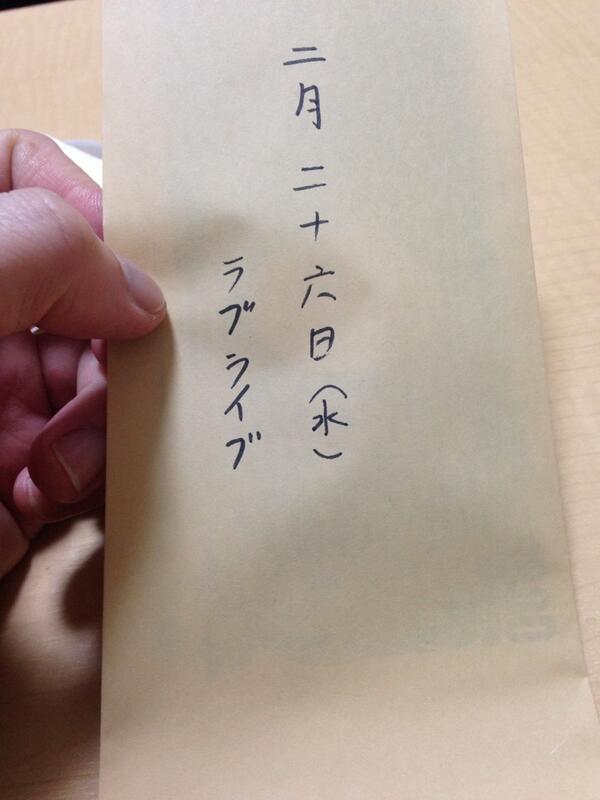 二月二十六日（水）
ラブライブ